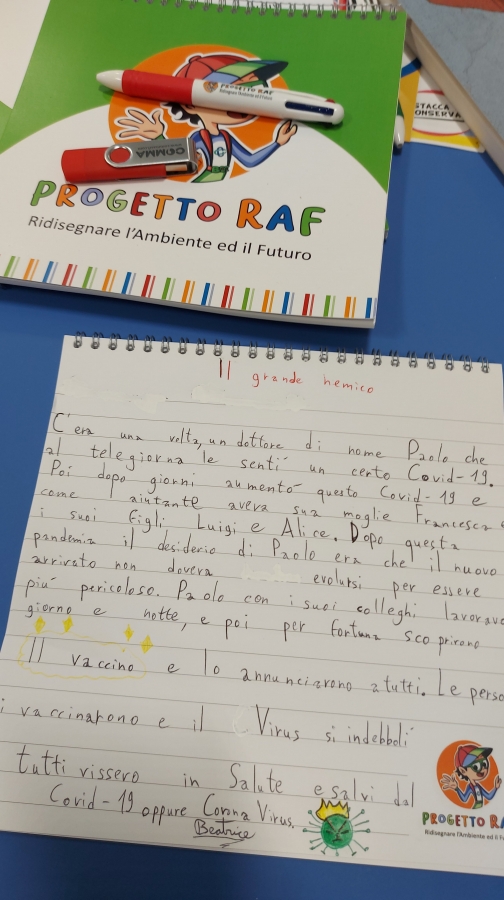 PROGETTO RAF
COMMA
STACCA
CONSERVA
PROGETTO RAF
Ridisegnare l'Ambiente ed il Futuro
Il grande nemico
C'era una volta, un dottore di nome Paolo che
al telegiorna le sentì un certo Covid-19.
Poi dopo giorni aumentò questo Covid-19 e
come aiutante aveva sua moglie Francesca e
i suoi figli Luigi e Alice. Dopo questa
pandemia il desiderio di Paolo era che il nuovo
arrivato non doveva evolversi per essere
più pericoloso. Paolo con i suoi colleghi lavorava
giorno e notte, e poi per fortuna scoprirono
Il vaccino e lo annunciarono a tutti. Le perso
i vaccinarono e il Virus si indebbolì
tutti vissero in Salute e salvi dal
Covid-19 oppure Corona Virus.
Beatrice
PROGETTO RA
Ridisegnare l'Ambiente ed il F